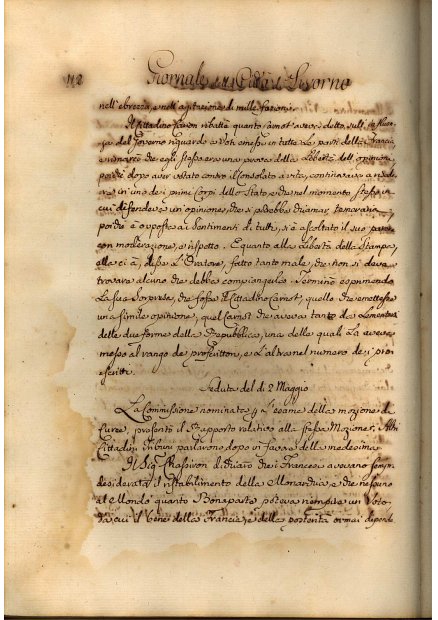 112 Giornale della Città di Livorno
nell'ebrezza, e nell'agitazione di mille fazioni.
Il Cittadino ribattè quanto Carnot aveva detto sull'
del Governo riguardo ai Voti emessi in tutte le parti della Francia,
e rimarcò che egli stesso era una prova della Libertà dell'opinioni,
poichè dopo aver votato contro il Consolato a vita, continuava a
in uno dei primi Corpi dello Stato, e che nel momento stesso in
cui difendeva un'opinione, che si potrebbe chiamar temeraria,
poichè è opposta ai Sentimenti di tutti, si è ascoltato il suo parere
con moderazione, e rispetto. E quanto alla Libertà della Stampa,
ella ci à, disse l'Oratore, fatto tanto male, che non si deve
trovare alcuno che debba compiangerla. Terminò esprimendo
la sua Sorpresa, che fosse il Cittadino Carnot, quello che emettesse
una simile opinione, quel Carnot che aveva tanto da Lamentarsi
delle due forme della Repubblica, una delle quali lo aveva
messo al rango de' proscrittori, e l'altra nel numero de' pro-
scritti.
Seduta del dì 2 Maggio
La Commissione nominata p. l'esame della mozione di
Curée, presentò il Rapporto relativo alla stessa Mozione. Altri
Cittadini Tribuni parlarono dopo in favore della medesima.
Il Sig. dichiarò che i Francesi avevano sempre
desiderata il ristabilimento della Monarchia, e che nessuno
al Mondo quanto Bonaparte poteva riempire un Voto
da cui il bene della Francia, e della posterità ormai dipende.